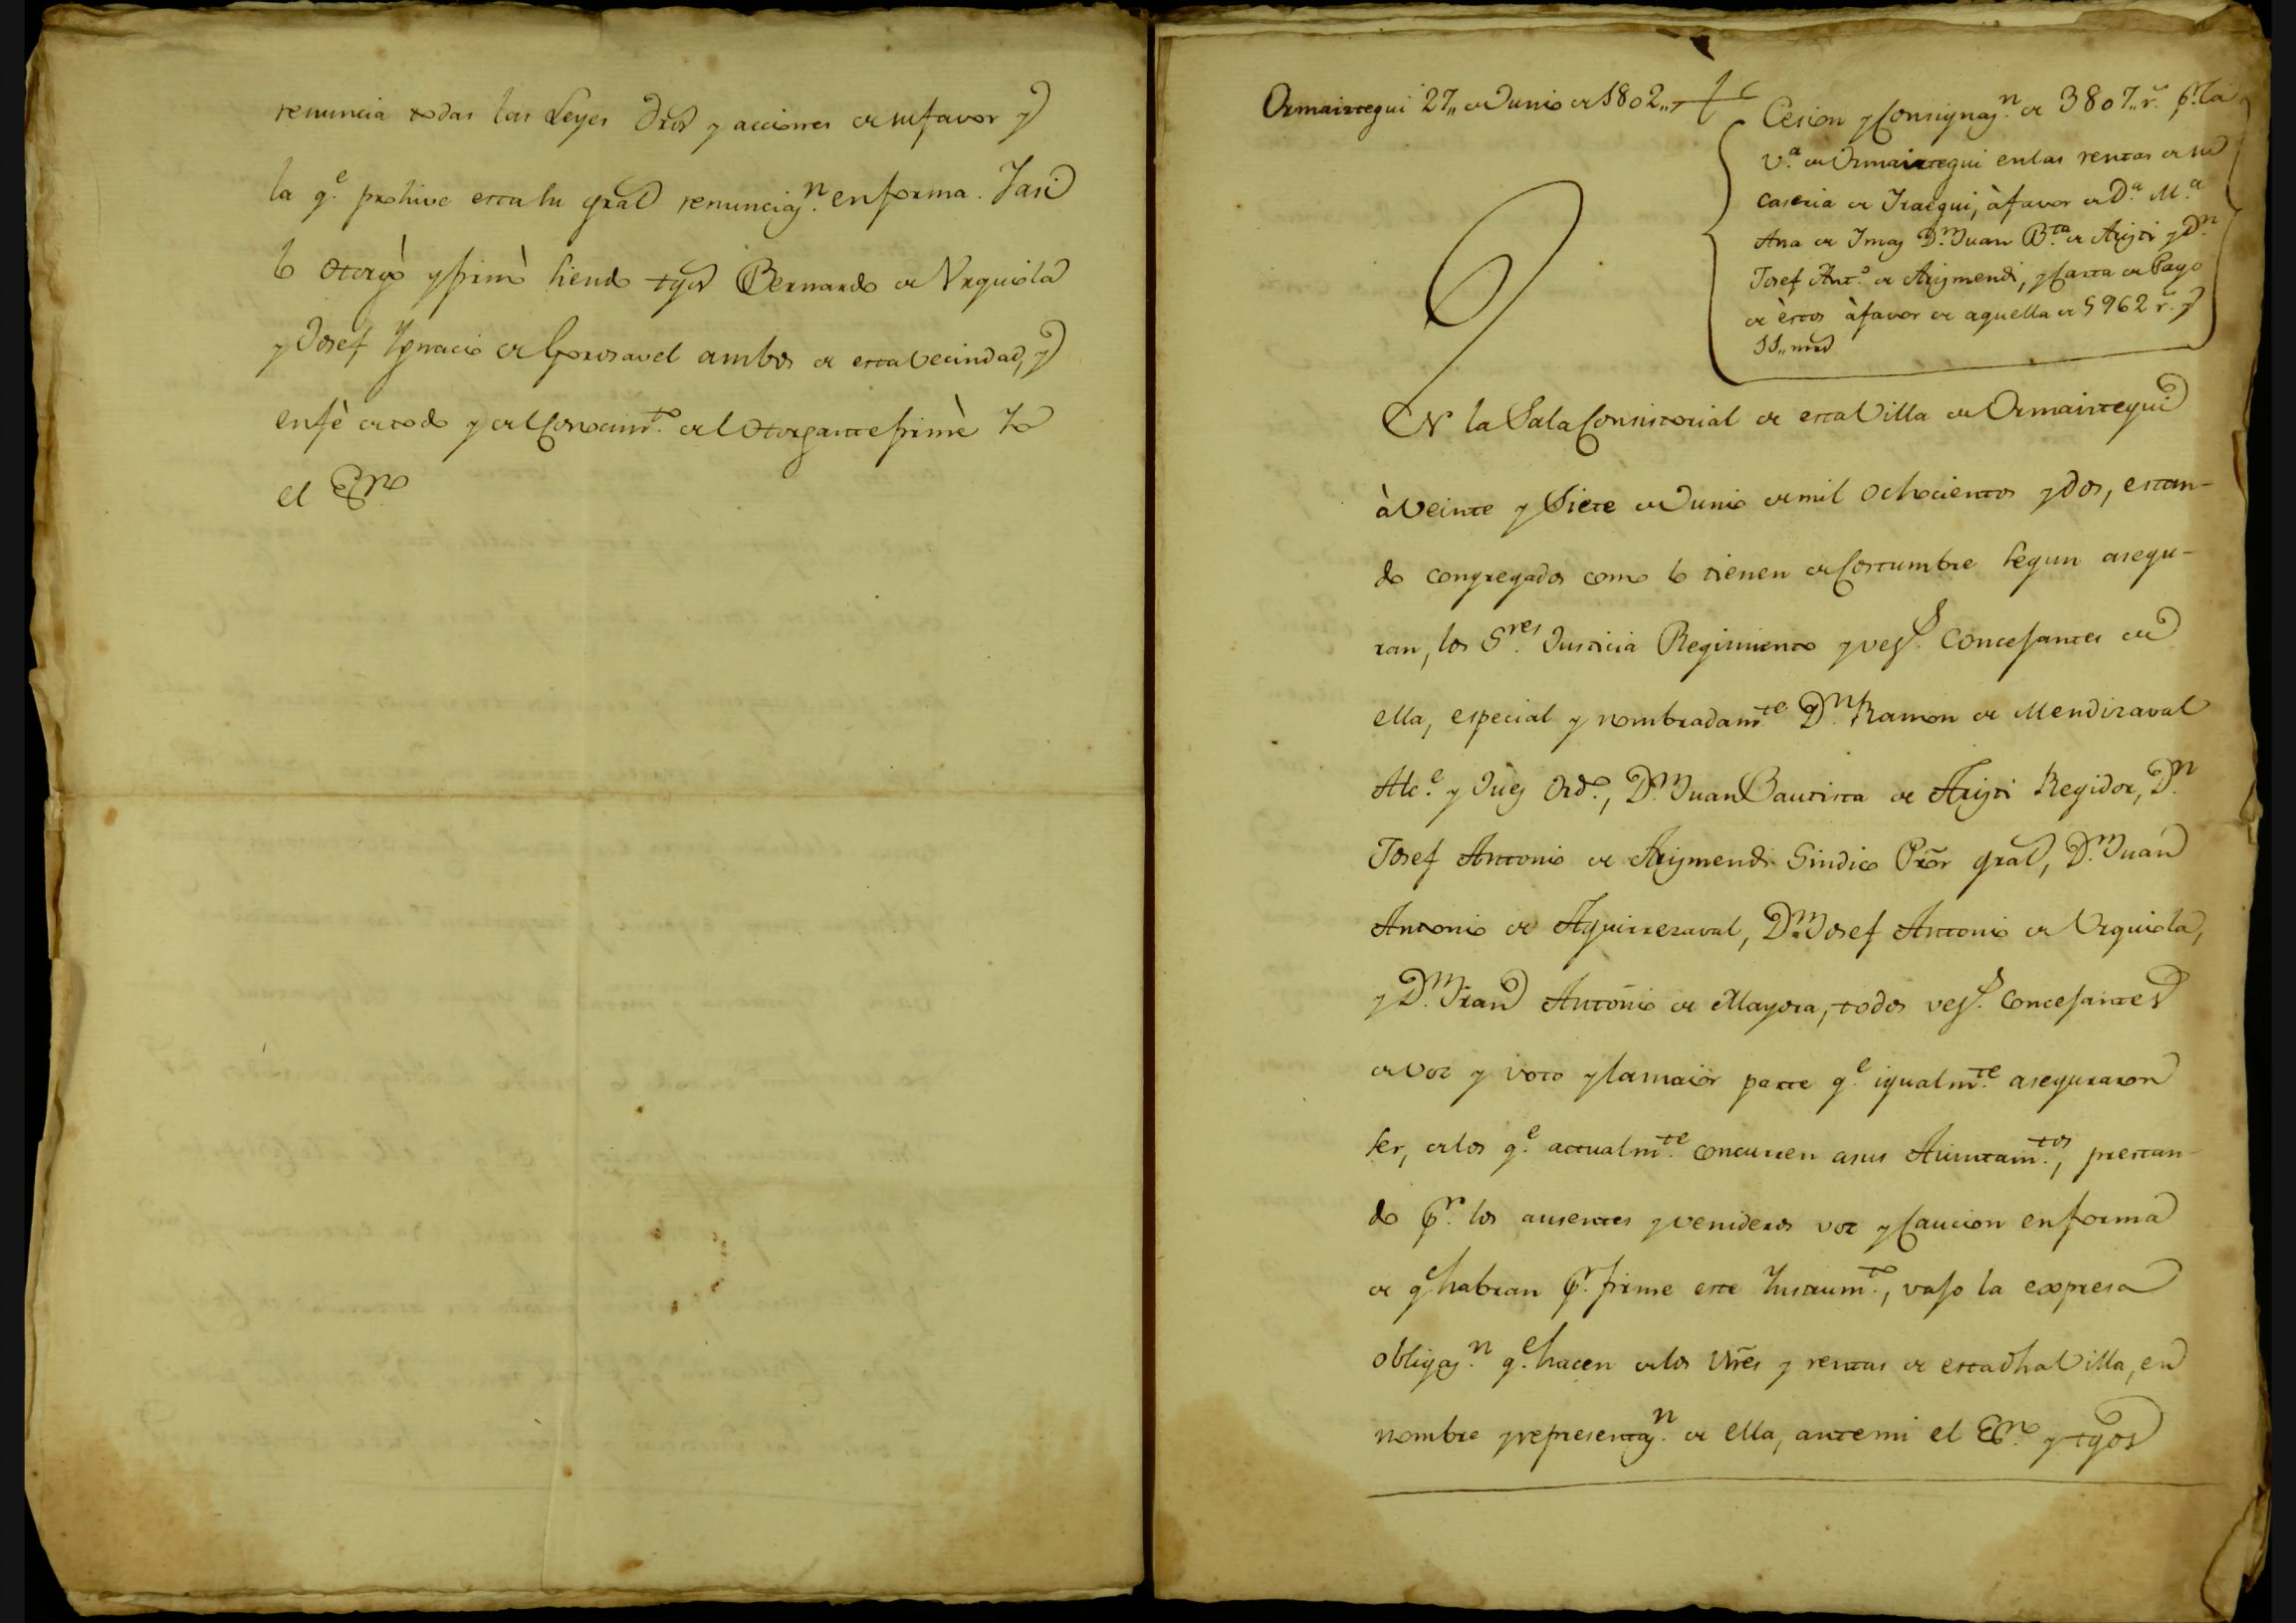 renuncia todas las Leyes dros y acciones de su favor y
la q.e prohive esta su gral renunciaz.n en forma. Y asi
lo otorgò y firmò siendo tgos Bernardo de Urquiola
y Josef Ygnacio de Gorosavel ambos de esta Vecindad, y
en fè de todo y del Conocim.to del Otorgante firmè Yo
el Esno
Ormaiztegui 27,, de Junio de 1802,,
Cesion y Consignaz.n de 3807,, r.s p.r la
V.a de Ormaiztegui en las rentas de su
caseria de Iraegui, à favor de D.a M.a
Ana de Imaz D.n Juan B.ta de Arizti y D.n
Josef Ant.o de Arizmendi, y Carta de Pago
de èstos à favor de aquella de 5962 r.s y
11,, mrs
EN la Sala Consistorial de esta Villa de Ormaiztegui
à Veinte y Siete de Junio de mil ochocientos y dos, estan-
do congregados como lo tienen de Costumbre segun asegu-
ran, los S.res Justicia Regimiento y vez.s Concejantes de
ella, especial y nombradam.te D.n Ramon de Mendizaval
Alc.e y Juez Ord.o, D.n Juan Bautista de Arizti Regidor, D.n
Josef Antonio de Arizmendi Sindico Pror gral, D.n Juan
Antonio de Aguirrezaval, D.n Josef Antonio de Urquiola,
y D.n Fran Antonio de Mayora, todos vez.s Concejantes
de voz y voto y la maior parte q.e igualm.te aseguraron
ser, de los q.e actualm.te concurren a sus Aiuntam.tos, prestan-
do p.r los ausentes y venideros voz y Caucion en forma
de q.e habran p.r firme este Instrum.to, vajo la expresa
obligaz.n q.e hacen de los Vnes y rentas de esta dha Villa, en
nombre y representaz.n de ella, ante mi el Esno y tgos